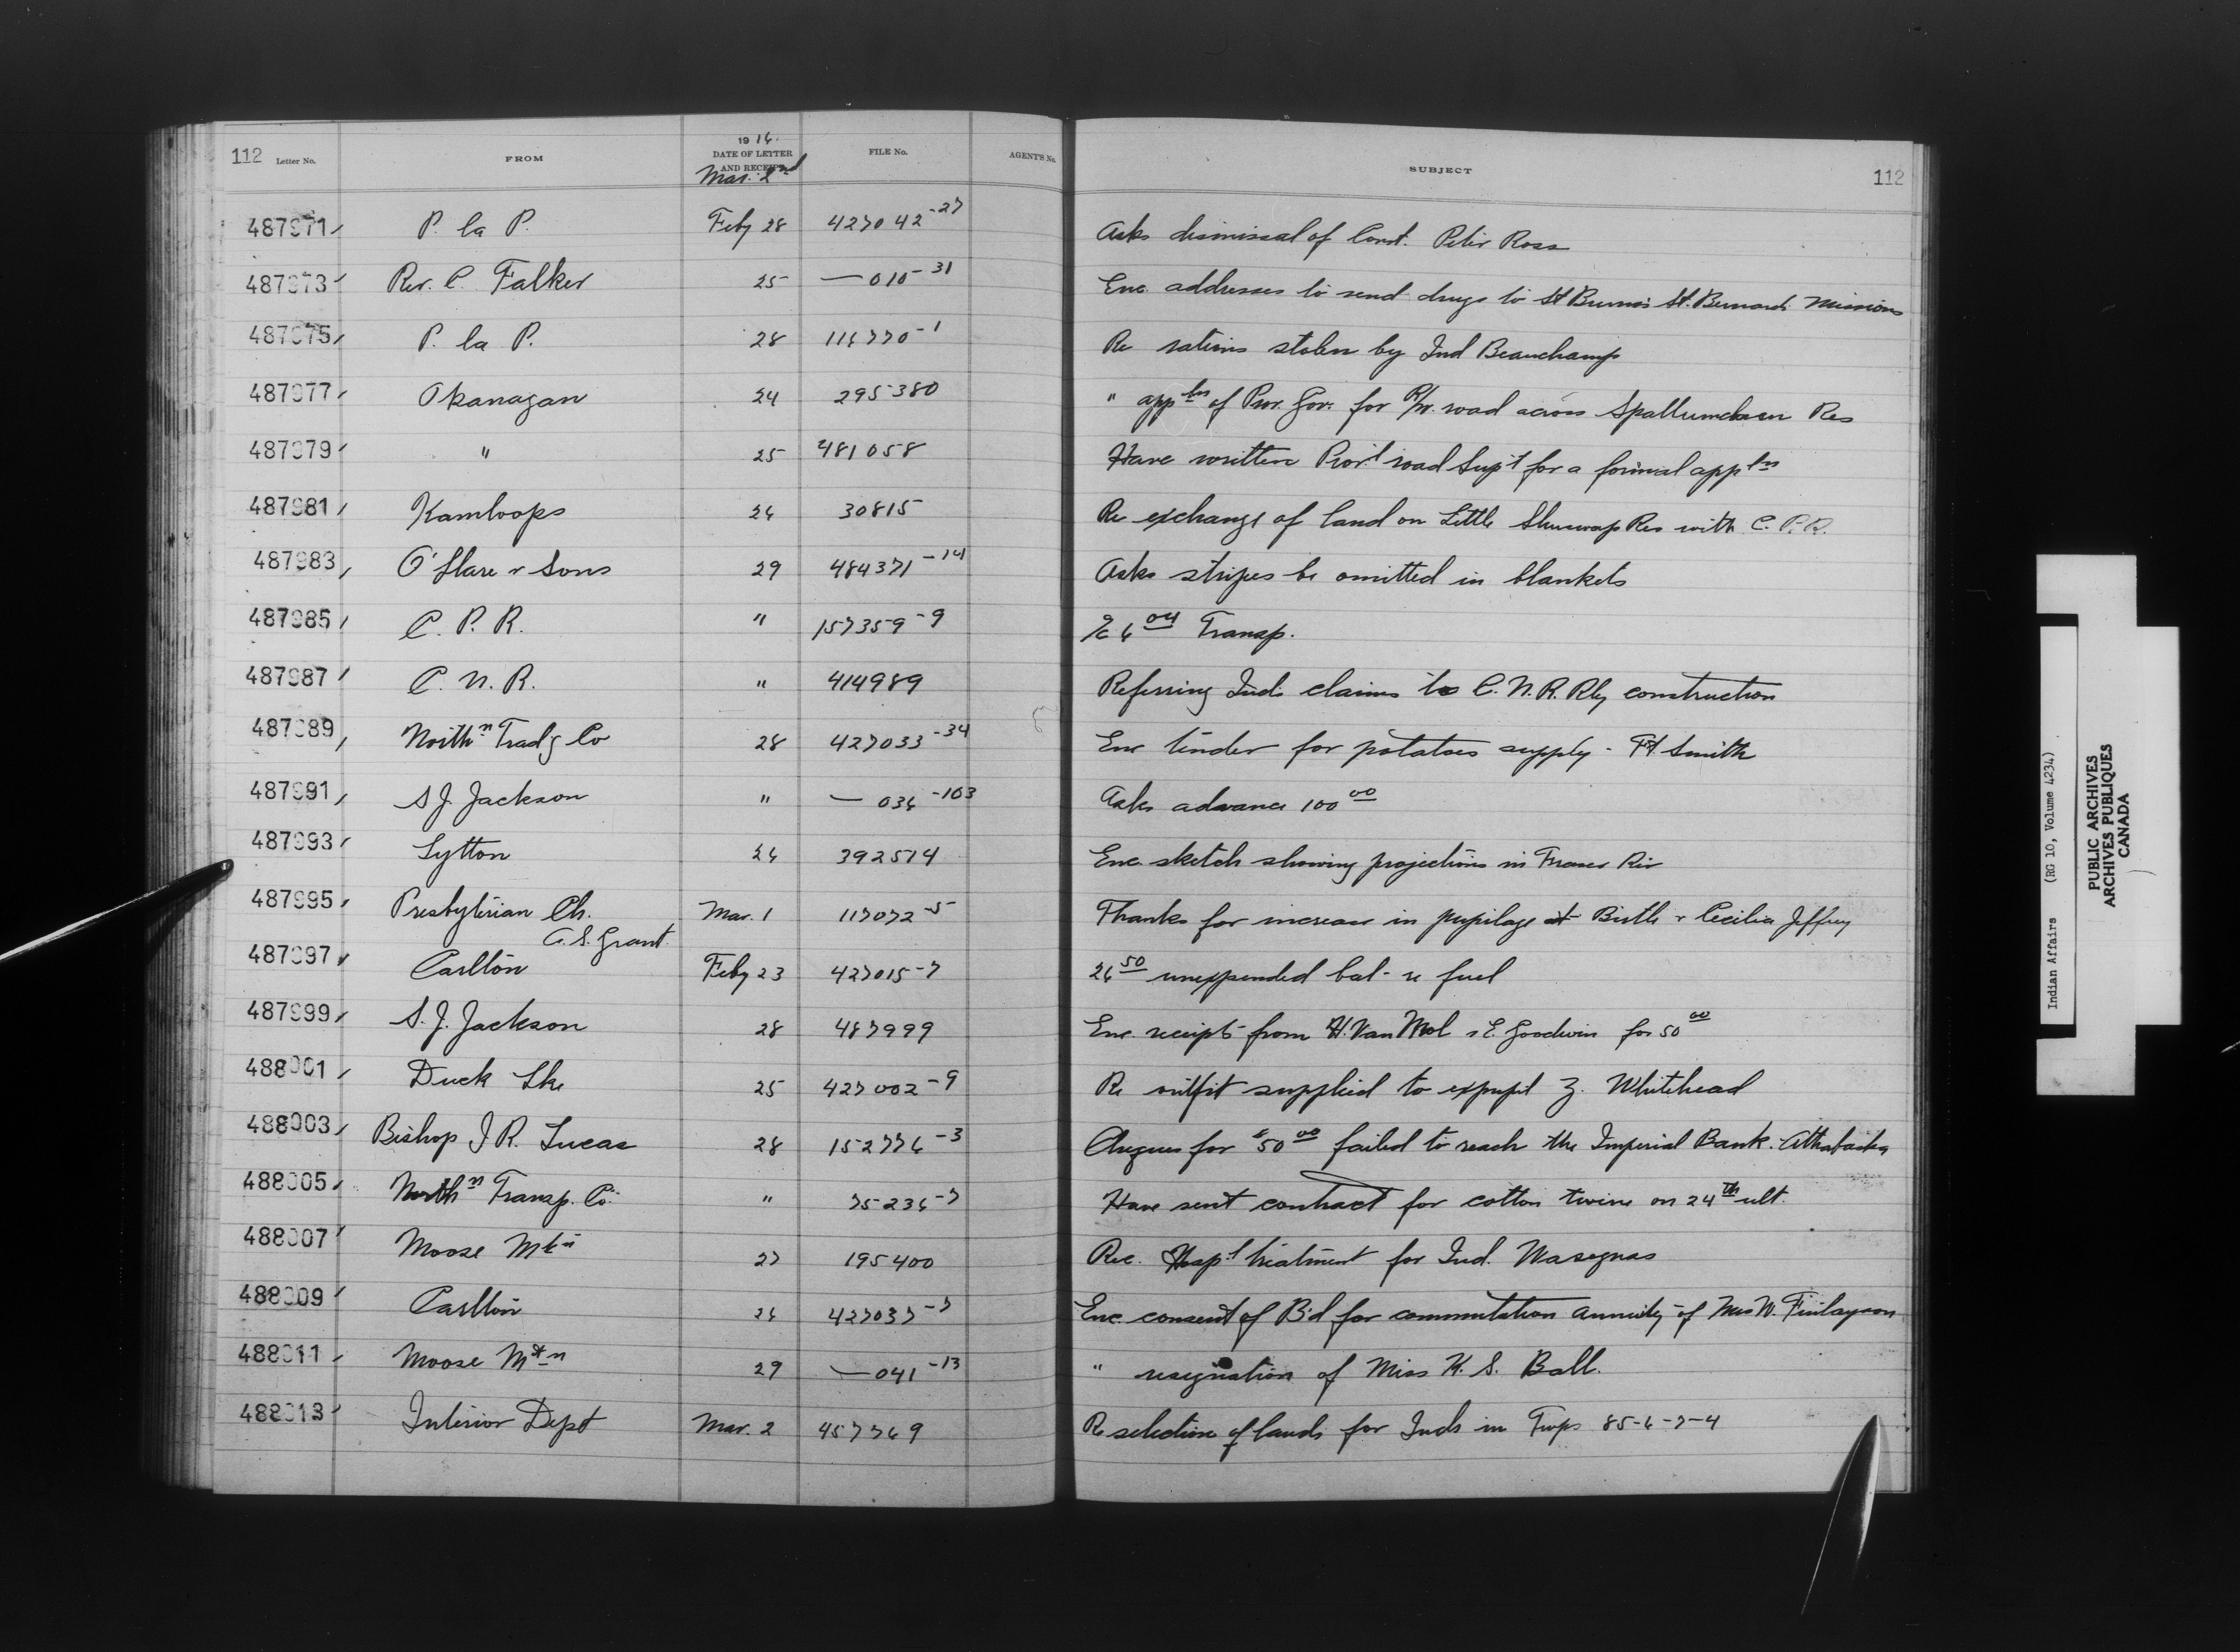 112 Letter No. FROM 1916. DATE OF LETTER AND RECEIPT FILE No. AGENT'S No. SUBJECT 112
Mar. 2nd
487971 P. la P. Feby 28 427042-27 Asks dismissal of Const. Peter Ross
487973 Rev. C. Falker 25 — 010-31 Enc. addresses to send drugs to St Bruno's St. Bernards Missions
487975 P. la P. 28 116770-1 Re rations stolen by Ind Beauchamp
487977 Okanagan 24 295380 " appln of Prov. Gov. for R/W. road across Spallumcheen Res
487979 " 25 481058 Have written Prov'l road Supt for a formal appln
487981 Kamloops 26 30815 Re exchange of land on Little Shuswap Res with C.P.R.
487983 O'Hare & Sons 29 484371-14 Asks stripes be omitted in blankets
487985 C. P. R. " 157359-9 a/c 6 04 Transp.
487987 C. N. R. " 414989 Referring Inds claims to C. N. R. Rly construction
487989 Northn Trad'g Co 28 427033-34 Enc tender for potatoes supply - Ft. Smith
487991 S J. Jackson " — 036-103 Asks advance 100 00
487993 Lytton 26 392514 Enc. sketch showing projections in Fraser Riv
487995 Presbyterian Ch. Mar. 1 117072-5 Thanks for increase in pupilage at Birtle & Cecilia Jeffrey
A. S. Grant
487997 Carlton Feby 23 427015-7 26 50 unexpended bal- re fuel
487999 S. J. Jackson 28 487999 Enc. receipts from H. Van Mol & E. Goodwin for 50 00
488001 Duck Lke 25 427002-9 Re outfit supplied to expupil Z. Whitehead
488003 Bishop J R. Lucas 28 152776-3 Cheques for $50 00 failed to reach the Imperial Bank. Athabaska
488005 Northn Transp. Co. " 75236-7 Have sent contract for cotton twine on 24th ult.
488007 Moose Mtn 27 195400 Rec. Hosp'l treatment for Ind. Wasegnas
488009 Carlton 26 427037-7 Enc. consent of B'd for commutation annuity of Mrs W. Finlayson
488011 Moose Mtn 29 — 041-13 " resignation of Miss K. S. Ball.
488013 Interior Dept Mar. 2 457769 Re selection of lands for Inds in Twps 85-6-7-4
Indian Affairs (RG 10, Volume 4234)
PUBLIC ARCHIVES
ARCHIVES PUBLIQUES
CANADA